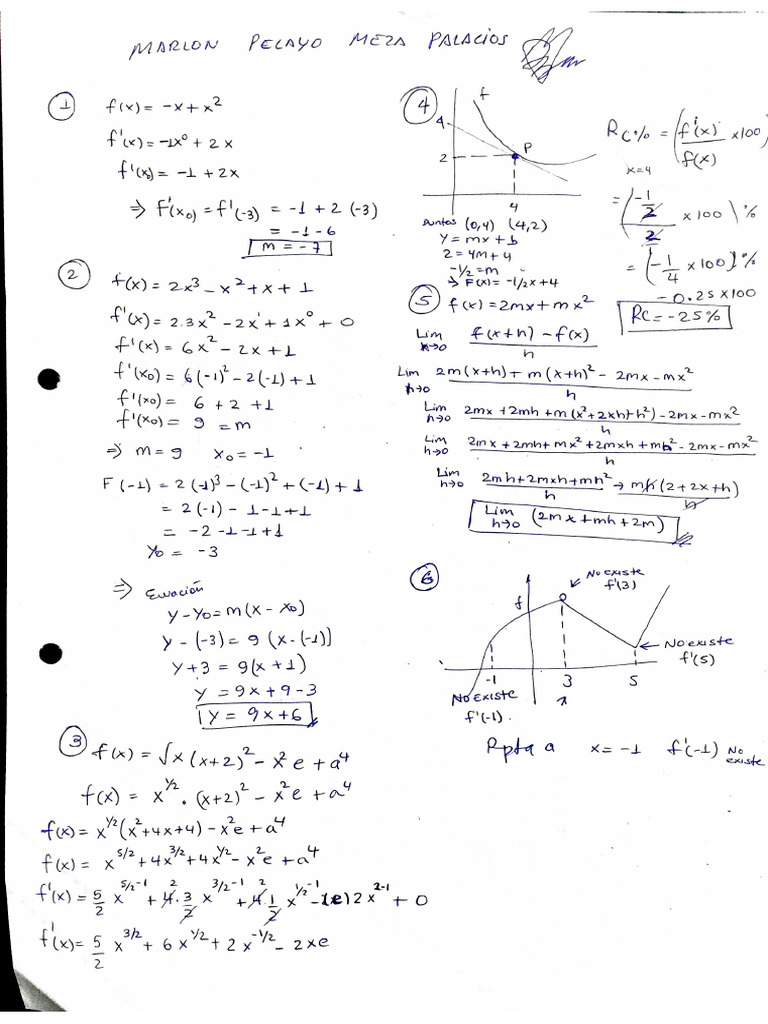 MARLON PELAYO MEZA PALACIOS
①
f(x) = -x + x²
f'(x) = -1x⁰ + 2x
f'(x₀) = -1 + 2x
⇒ f'(x₀) = f'(-3) = -1 + 2(-3)
= -1 - 6
m = -7
②
f(x) = 2x³ - x² + x + 1
f'(x) = 2.3x² - 2x¹ + 1x⁰ + 0
f'(x) = 6x² - 2x + 1
f'(x₀) = 6(-1)² - 2(-1) + 1
f'(x₀) = 6 + 2 + 1
f'(x₀) = 9 = m
⇒ m = 9 x₀ = -1
F(-1) = 2(-1)³ - (-1)² + (-1) + 1
= 2(-1) - 1 - 1 + 1
= -2 - 1 - 1 + 1
y₀ = -3
⇒ Ecuación
y - y₀ = m(x - x₀)
y - (-3) = 9(x - (-1)]
y + 3 = 9(x + 1)
y = 9x + 9 - 3
y = 9x + 6
③
f(x) = √x (x+2)² - x²e + a⁴
f(x) = x^1/2 . (x+2)² - x²e + a⁴
f(x) = x^1/2 (x² + 4x + 4) - x²e + a⁴
f(x) = x^5/2 + 4x^3/2 + 4x^1/2 - x²e + a⁴
f'(x) = 5/2 x^5/2-1 + 4² . 3/2 x^3/2-1 + 4² . 1/2 x^1/2-1 - (e)2x^2-1 + 0
f'(x) = 5/2 x^3/2 + 6x^1/2 + 2x^-1/2 - 2xe
④
f
4
2
P
4
Puntos (0,4) (4,2)
y = mx + b
2 = 4m + 4
-1/2 = m
⇒ F(x) = -1/2x + 4
RC% = (f'(x)/f(x) x100)
x=4
= (-1/2 / 2 x 100) %
= (-1/4 x 100) %
- 0.25 x100
RC = -25%
⑤ f(x) = 2mx + mx²
Lim h→0 f(x+h) - f(x) / h
Lim h→0 2m(x+h) + m(x+h)² - 2mx - mx² / h
Lim h→0 2mx + 2mh + m(x² + 2xh + h²) - 2mx - mx² / h
Lim h→0 2mx + 2mh + mx² + 2mxh + mh² - 2mx - mx² / h
Lim h→0 2mh + 2mxh + mh² / h → mh(2 + 2x + h) / h
Lim h→0 (2mx + mh + 2m)
⑥
f
No existe
f'(3)
No existe
f'(5)
-1
3
5
No existe
f'(-1).
Rpta a x = -1 f'(-1) No existe